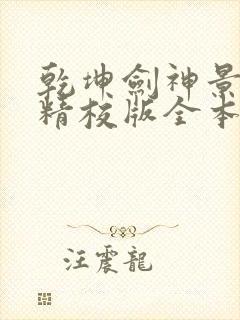 乾坤劍神景
精校版全本
汪震龍